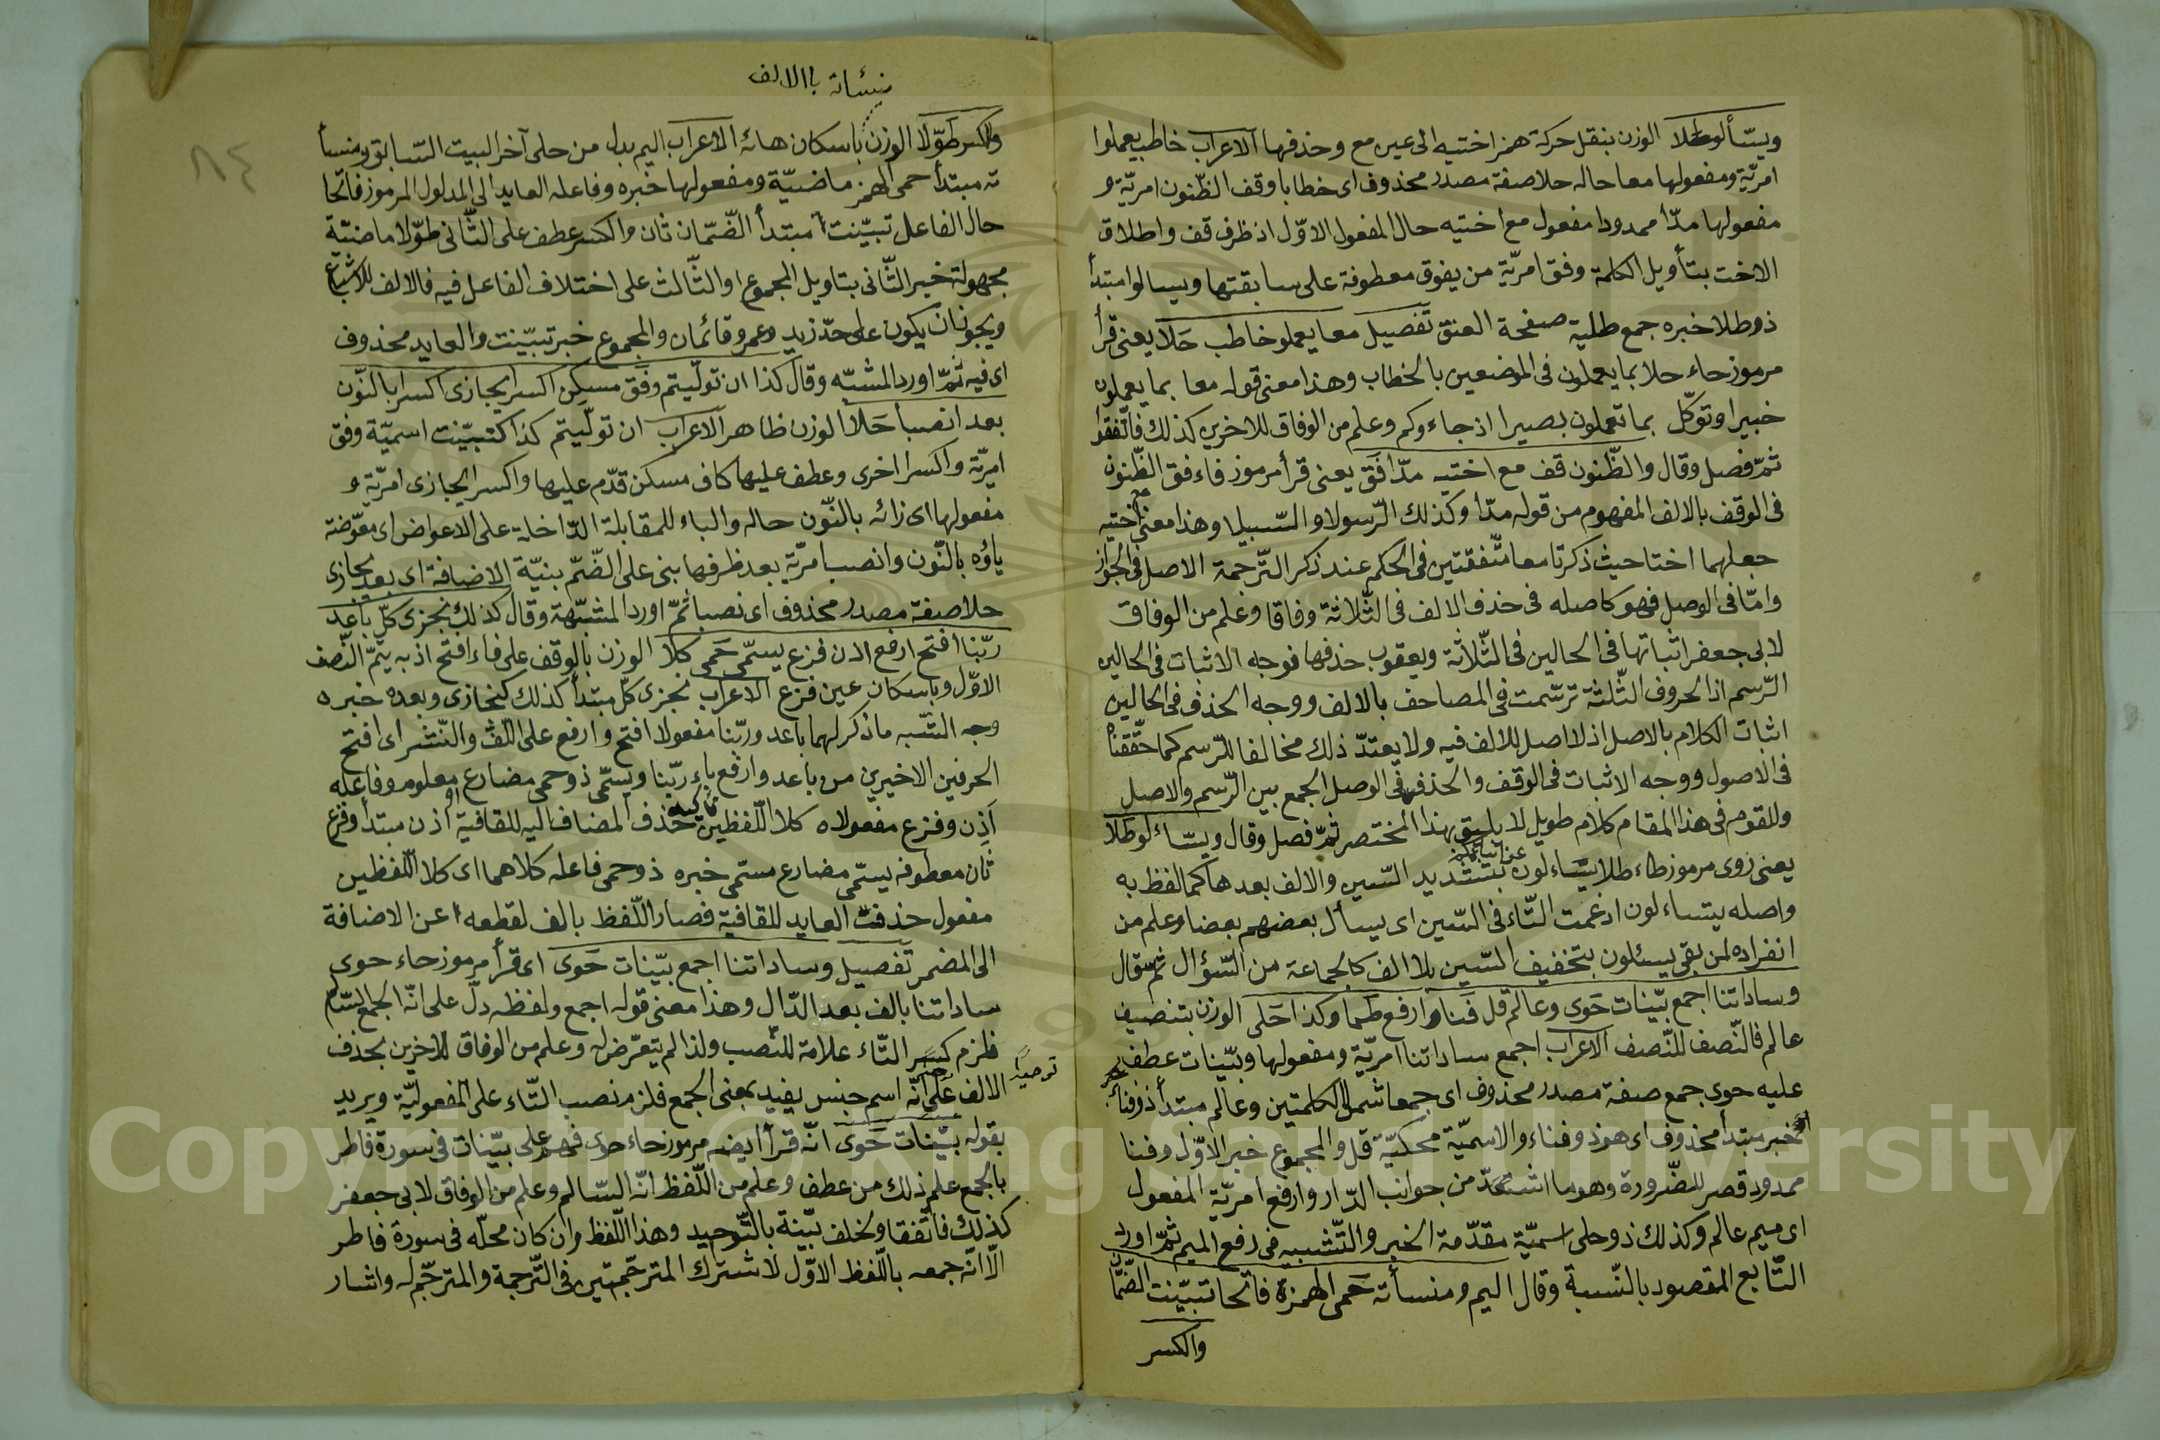 ويسّألو طلا الوزن بنقل حركة همز اختيه الى عين مع وحذفها الاعراب خاطب يعملوا
امريّة ومفعولها معا حاله حلا صفة مصدر محذوف اى خطابا وقف الظّنون امريّة و
مفعولها مدّا ممدودا مفعول مع اختيه حال المفعول الاوّل اذ ظرف قف واطلاق
الاخت بتأويل الكلمة وفق امريّة من يفوق معطوفة على سابقتها ويسالوا مبتدأ
ذو طلا خبره جمع طلية صفحة العنق تفصيل معا يعملو خاطب حَلا يعنى قرأ
مرموز حاء حلا بما يعملون فى الموضعين بالخطاب وهذا معنى قوله معا بما يعملون
خبيرا وتوكّل بما تعملون بصيرا اذ جاءوكم وعلم من الوفاق للاخرين كذلك فاتّفقوا
ثمّ فصل وقال والظّنون قف مع اختيه مدّا فَق يعنى قرأ مرموز فاء فق الظّنون
فى الوقف بالالف المفهوم من قوله مدّا وكذلك الرّسولا والسّبيلا وهذا معنى اختيه
جعلهما اختا حيث ذكرتا معا متّفقتين فى الحكم عند ذكر التّرجمة الاصل فى الجواز
وامّا فى الوصل فهو كاصله فى حذف الالف فى الثّلاثة وفاقا وعلم من الوفاق
لابى جعفر اثباتها فى الحالين فى الثّلاثة ويعقوب حذفها فوجه الاثبات فى الحالين
الرّسم اذ الحروف الثّلثة ترسّمت فى المصاحف بالالف ووجه الحذف فى الحالين
اثبات الكلام بالاصل اذ لا اصل للالف فيه ولا يعتدّ ذلك مخالفا للرّسم كما حقّقناه
فى الاصول ووجه الاثبات فى الوقف والحذف فى الوصل الجمع بين الرّسم والاصل
وللقوم فى هذا المقام كلام طويل لا يليق بهذا المختصر ثمّ فصل وقال ويسّاءلو طَلا
يعنى روى مرموز طاء طلا يسّاءلون عن انبائكم بتشديد السّين والالف بعدها كما لفظ به
واصله يتساءلون ادغمت التّاء فى السّين اى يسأل بعضهم بعضا وعلم من
انفراده لمن بقى يسئلون بتخفيف السّين بلا الف كالجماعة من السّؤال ثمّ قال
وساداتنا اجمع بيّنات حَوى وعالم قل فَنا وارفع طَما وكذا حَلى الوزن بتنصيف
عالم فالنّصف للنّصف الاعراب اجمع ساداتنا امريّة ومفعولها وبيّنات عطف
عليه حوى جمع صفة مصدر محذوف اى جمعا شمل الكلمتين وعالم مبتدأ ذو فناء
خبر مبتدأ محذوف اى هو ذو فناء والاسميّة محكيّة قل والمجموع خبر الاوّل وفنا
ممدود قصر للضّرورة وهو ما امتدّ من جوانب الدّار وارفع امريّة المفعول
اى ميم عالم وكذلك ذو حلى اسميّة مقدّمة الخبر والتّشبيه فى رفع الميم ثمّ اورد
التّابع المقصود بالنّسبة وقال اليم ومنسأته حَمى الهمزة فاتحا تبيّنت الضّمّان
والكسر
منسأته بالالف
والكسر طَوّلا الوزن باسكان هائه الاعراب اليم بدل من حلى آخر البيت السّابق ومنسأ
ته مبتدأ حمى الهمز ماضيّة ومفعولها خبره وفاعله العايد الى المدلول المرموز فاتحا
حال الفاعل تبيّنت مبتدأ الضّمّان ثان والكسر عطف على الثّانى طوّلا ماضيّة
مجهولة خبر الثّانى بتاويل المجموع او الثّالث على اختلاف الفاعل فيه فالالف للاشباع
ويجوز ان يكون على حدّ زيد وعمرو قائمان والمجموع خبر تبيّنت والعايد محذوف
اى فيه ثمّ اورد المشبّه وقال كذا ان تولّيتم وفق مسكن اكسر يجازى اكسرا بالنّون
بعد انصبا حَلا الوزن ظاهر الاعراب ان تولّيتم كذا كتبيّنت اسميّة وفق
امريّة واكسر اخرى وعطف عليها كاف مسكن قدّم عليها واكسر يجازى امريّة و
مفعولها اى زائه بالنّون حاله والباء للمقابلة الدّاخلة على الاعواض اى معوّضة
ياؤه بالنّون وانصب امريّة بعد ظرفها بنى على الضّمّ بنيّة الاضافة اى بعد يجازى
حلا صفة مصدر محذوف اى نصبا ثمّ اورد المشبّهة وقال كذلك نجزى كلّ باعَد
ربّنا افتح ارفع اذن فزع يسمّى حَمى كلا الوزن بالوقف على فاء افتح اذ به يتمّ النّصف
الاوّل وباسكان عين فزع الاعراب نجزى كلّ مبتدأ كذلك كيجازى وبعده خبره
وجه الشّبه ما ذكر لهما باعد وربّنا مفعولا افتح وارفع على اللّفّ والنّشر اى افتح
الحرفين الاخيرين من باعد وارفع باء ربّنا ويسمّى ذو حمى مضارع معلوم وفاعله
اذن وفزع مفعولاه كلا اللّفظين تاكيد حذف المضاف اليه للقافية او اذن مبتدأ وفزع
ثان معطوفه يسمّى مضارع مسمّى خبره ذو حمى فاعله كلاهما اى كلا اللّفظين
مفعول حذفت العايد للقافية فصار اللّفظ بالف لقطعه عن الاضافة
الى المضمر تفصيل وساداتنا اجمع بيّنات حَوى اى قرأ مرموز حاء حوى
ساداتنا بالف بعد الدّال وهذا معنى قوله اجمع ولفظه دلّ على انّه الجمع السّالم
فلزم كسر التّاء علامة للنّصب ولذا لم يتعرّض له وعلم من الوفاق للاخرين بحذف
توحيدا
الالف على انّه اسم جنس يفيد بمعنى الجمع فلزم نصب التّاء على المفعوليّة ويريد
بقوله بيّنات حَوى انّه قرأ ايضا مرموز حاء حوى فهم على بيّنات فى سورة فاطر
بالجمع علم ذلك من عطف وعلم من اللّفظ انّه السّالم وعلم من الوفاق لابى جعفر
كذلك فاتّفقا ولخلف بيّنة بالتّوحيد وهذا اللّفظ وان كان محلّه فى سورة فاطر
الّا انّه جمعه باللّفظ الاوّل لاشتراك المترجمتين فى التّرجمة والمترجّم له واشار
٨٤
Copyright © King Saud University